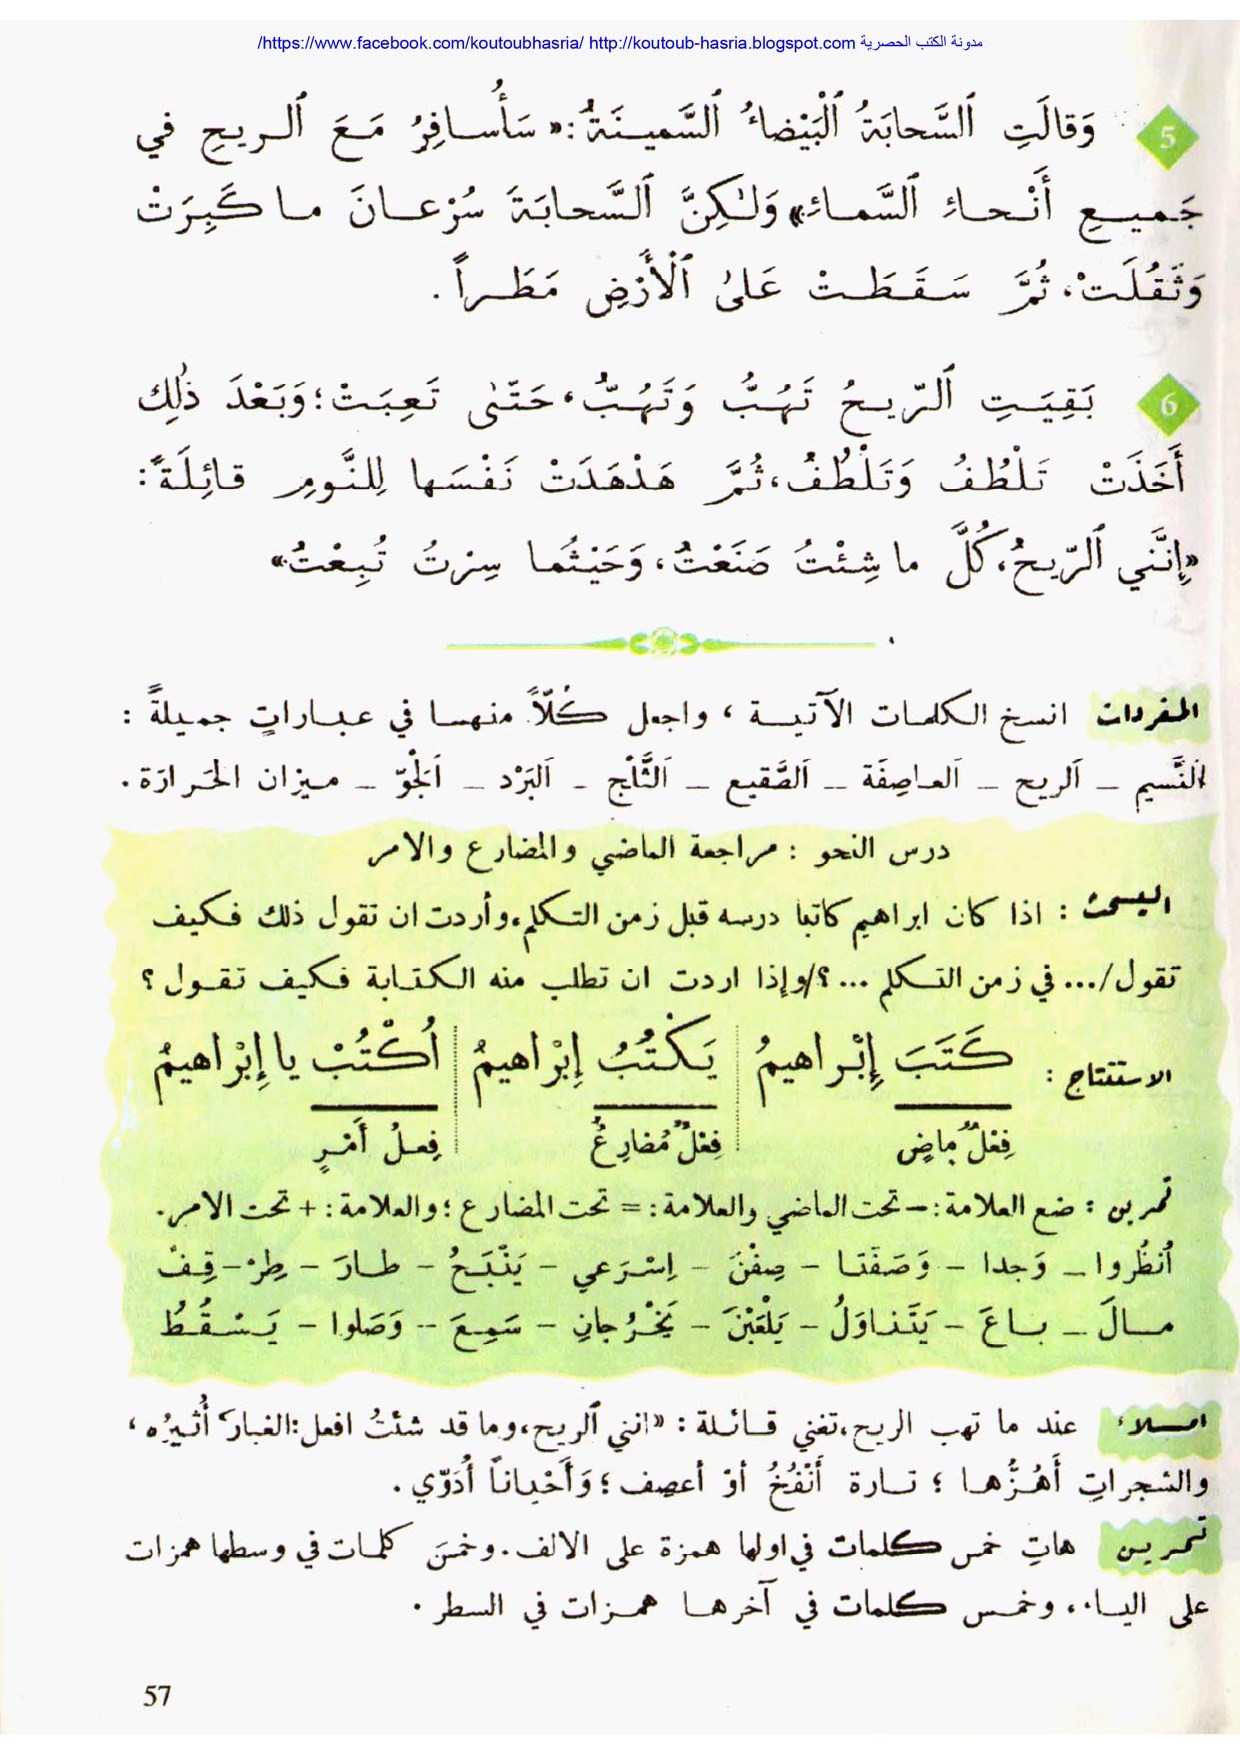 https://www.facebook.com/koutoubhasria/ http://koutoub-hasria.blogspot.com مدونة الكتب الحصرية/
5 وَقالَتِ ٱلسَّحابَةُ ٱلْبَيْضاءُ ٱلسَّمينَةُ: «سَأُسافِرُ مَعَ ٱلريحِ في
جَميعِ أَنْحاءِ ٱلسَّماءِ» وَلٰكِنَّ ٱلسَّحابَةَ سُرْعانَ ما كَبِرَتْ
وَثَقُلَتْ، ثُمَّ سَقَطَتْ عَلىٰ ٱلْأَرْضِ مَطَراً.
6 بَقِيَتِ ٱلرّيحُ تَهُبُّ وَتَهُبُّ، حَتّىٰ تَعِبَتْ؛ وَبَعْدَ ذٰلِكَ
أَخَذَتْ تَلْطُفُ وَتَلْطُفُ، ثُمَّ هَدْهَدَتْ نَفْسَها لِلنَّومِ قائِلَةً:
«إِنَّني ٱلرّيحُ، كُلَّ ما شِئْتُ صَنَعْتُ، وَحَيْثُما سِرْتُ تُبِعْتُ»
المفردات انسخ الكلمات الآتية، واجعل كُلّاً منهما في عبارات جميلةً:
اَلنَّسيم – اَلريح – اَلعاصِفَة – اَلصَّقيع – اَلثَّلْج – اَلبَرْد – اَلجَوّ – ميزان الحَرارَة.
درس النحو : مراجعة الماضي والمضارع والامر
البحث : اذا كان ابراهيم كاتبا درسه قبل زمن التكلم، وأردت ان تقول ذلك فكيف
تقول/... في زمن التكلم ...؟/وإذا اردت ان تطلب منه الكتابة فكيف تقول؟
الاستنتاج : كَتَبَ إِبْراهيمُ يَكْتُبُ إِبْراهيمُ اُكْتُبْ يا إِبْراهيمُ
فِعْلٌ ماضٍ فِعْلٌ مُضارِعٌ فِعلُ أَمْرٍ
تمرين : ضع العلامة: – تحت الماضي والعلامة: = تحت المضارع؛ والعلامة: + تحت الامر.
اُنظُروا – وَجدا – وَصَفَتا – صِفْنَ – اِسْرَعي – يَنْبَحُ – طارَ – طِرْ – قِفْ
مالَ – باعَ – يَتَناوَلُ – يَلْعَبْنَ – يَخْرُجانِ – سَمِعَ – وَصَلوا – يَسْقُطُ
امـلاء عند ما تهب الريح، تغني قائلة: «انني ٱلريح، وما قد شئتُ افعل: الغبارَ أُثيرُه،
والشجراتِ أَهُزُّها؛ تارة أَنْفُخُ أوْ أعصف؛ وَأَحْياناً أُدَوّي.
تمرين هاتِ خمس كلمات في اولها همزة على الالف. وخمسَ كلمات في وسطها همزات
على الياء، وخمس كلمات في آخرها همزات في السطر.
57